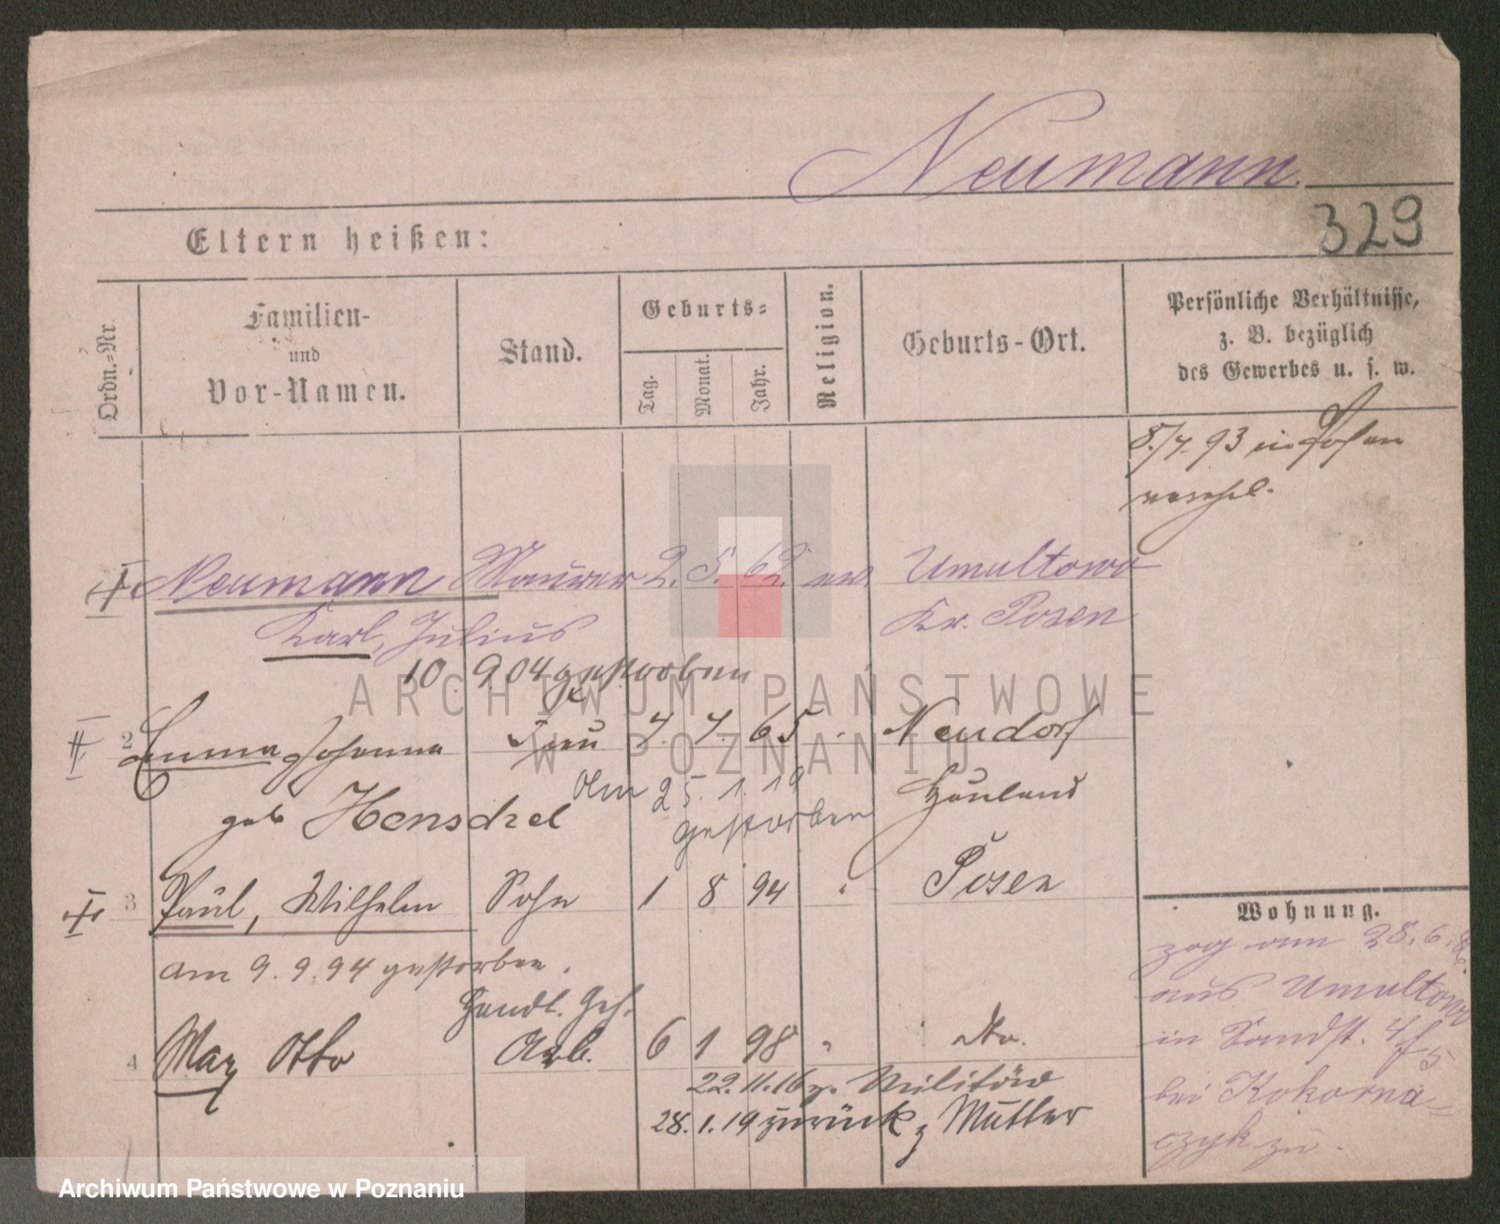 Neumann.
329
Eltern heißen:
Ordn.-Nr.
Familien-
und
Vor-Namen.
Stand.
Geburts-
Tag.
Monat.
Jahr.
Religion.
Geburts-Ort.
Persönliche Verhältnisse,
z. B. bezüglich
des Gewerbes u. s. w.
8./7. 93 in Posen
verehel.
Neumann Maurer 2. 5. 62. ev. Umultowo
Karl, Julius Kr. Posen
10 9 04 gestorben
2 Emma Johanna Frau 7. 7. 65 . Neudorf
geb Henschel Hauland
Am 25. 1. 19
gestorben
3 Paul, Wilhelm Sohn 1 8 94 Posen
am 9. 9. 94 gestorben.
Handl. Geh.
4 Max Otto Arb. 6 1 98 " dto.
22. 11. 16 z. Militär
28. 1. 19 zurück z Mutter
Wohnung.
zog am 28. 6.
aus Umultowo
in Sandst. 4/5
bei Kokorna=
czyk zu.
ARCHIWUM PAŃSTWOWE
W POZNANIU
Archiwum Państwowe w Poznaniu